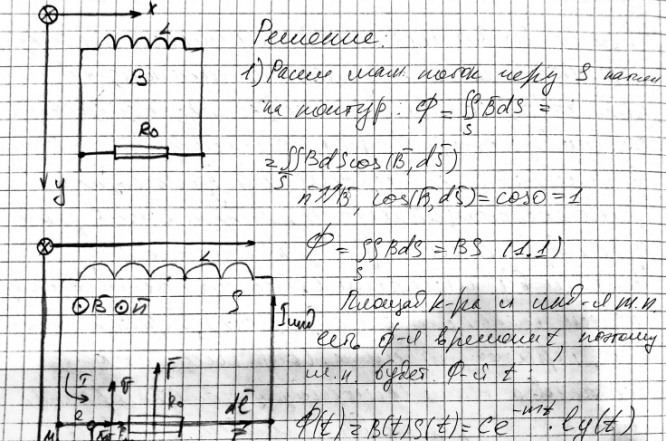 x
L
B
R₀
y
Решение:
1) Рассм маг. поток через S натян
на контур: Ф = ∬ B̄dS̄ =
S
= ∬ BdS cos(B̄, dS̄)
S
n̄↑↑B̄, cos(B̄, dS̄) = cos0 = 1
Ф = ∬ BdS = BS (1.1)
S
L
⊙B̄ ⊙n̄ S Iинд
Площад к-ра и инд-я т.п.
есть ф-я времени t, поэтому
м.п. будет ф-я t:
F̄
I
R₀ dℓ̄
M P
Ф(t) = B(t)S(t) = Ce⁻ᵐᵗ · ly(t)